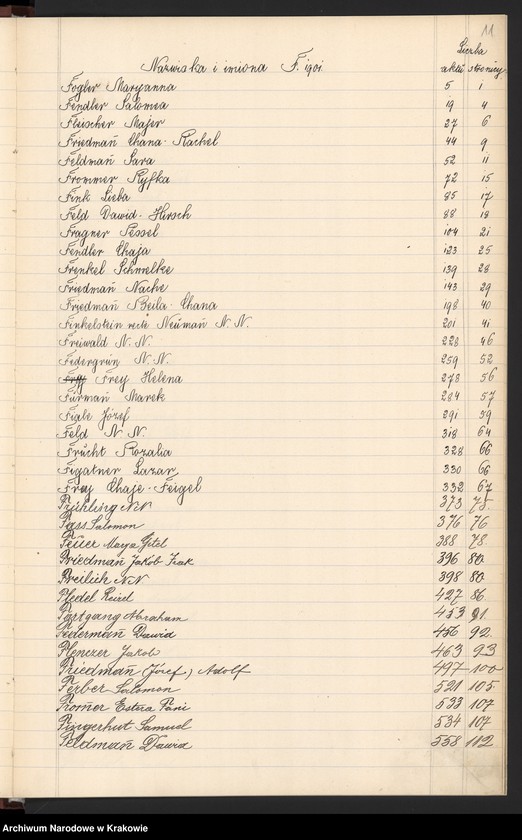 11
Liczba
Nazwiska i imiona F. 1901. aktu stronicy
Fogler Maryanna 5 1
Fendler Salomea 19 4
Fleischer Majer 27 6
Friedmañ Chana-Rachel 44 9
Feldmañ Sara 52 11
Frommer Ryfka 72 15
Fink Lieba 85 17
Feld Dawid-Hirsch 88 18
Fragner Pessel 104 21
Fendler Chaja 123 25
Frenkel Schmelke 139 28
Friedmañ Nache 143 29
Friedmañ Beila-Chana 198 40
Finkelstein recte Neümañ N. N. 201 41
Freiwald N. N. 228 46
Federgrün N. N. 259 52
Frey Helena 278 56
Fürmañ Marek 284 57
Fiale Józef 291 59
Feld N. N. 318 64
Frücht Rozalia 328 66
Figatner Lazar 330 66
Frey Chaje-Feigel 332 67
Frühling NN 373 75
Fass Salomon 376 76
Feuer Maya Gitel 388 78
Friedmañ Jakób Izak 396 80
Freilich NN 398 80
Fledel 427 86
Fartgang Abraham 453 91
Federmañ Dawid 456 92
Flenczer Jakób 463 93
Friedmañ (Józef) Adolf 497 100
Ferber Salomon 521 105
Estera 533 107
Fingerhut Samuel 534 107
Feldmañ Dawid 558 112
Archiwum Narodowe w Krakowie